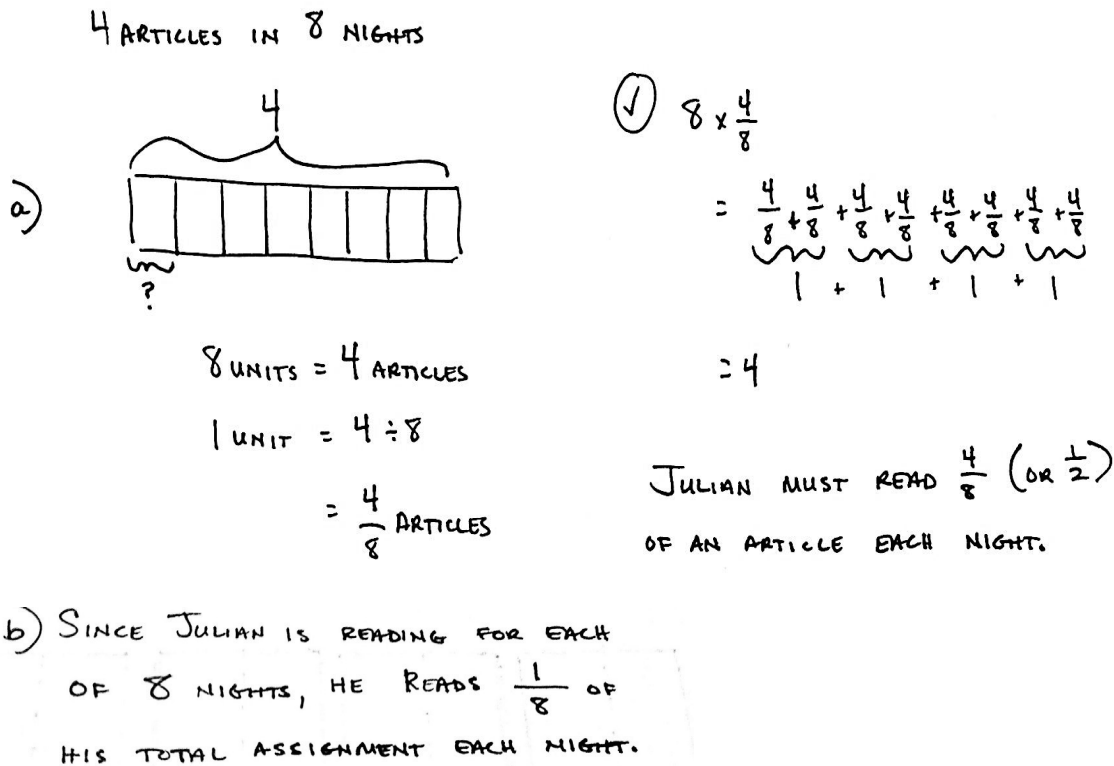 4 ARTICLES IN 8 NIGHTS
a)
4
?
8 UNITS = 4 ARTICLES
1 UNIT = 4 ÷ 8
= 4/8 ARTICLES
✓ 8 × 4/8
= 4/8 + 4/8 + 4/8 + 4/8 + 4/8 + 4/8 + 4/8 + 4/8
1 + 1 + 1 + 1
= 4
JULIAN MUST READ 4/8 (OR 1/2)
OF AN ARTICLE EACH NIGHT.
b) SINCE JULIAN IS READING FOR EACH
OF 8 NIGHTS, HE READS 1/8 OF
HIS TOTAL ASSIGNMENT EACH NIGHT.